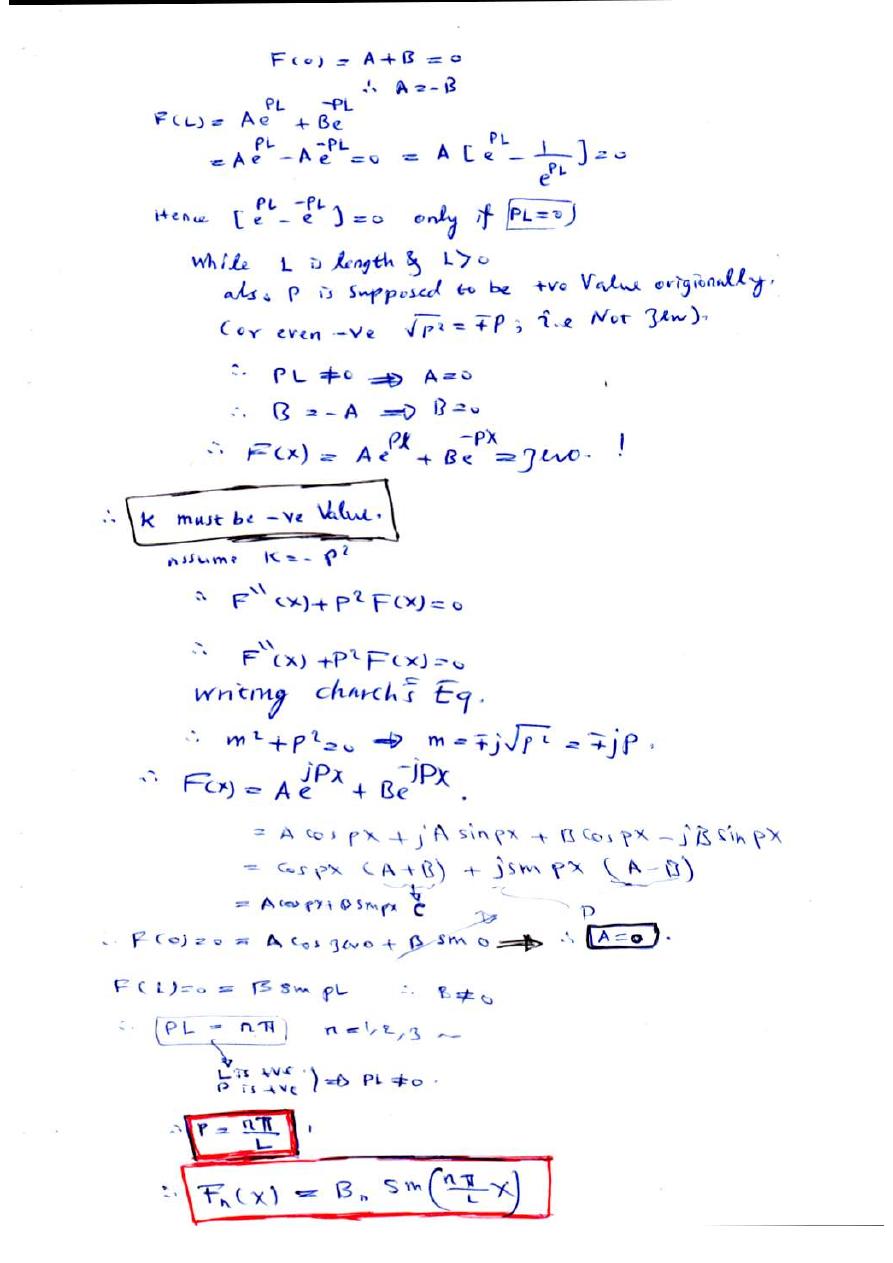 F(0) = A + B = 0
∴ A = -B
F(L) = Ae^{PL} + Be^{-PL}
= Ae^{PL} - Ae^{-PL} = 0 = A [e^{PL} - 1/e^{PL}] = 0
Hence [e^{PL} - e^{-PL}] = 0 only if PL = 0
While L is length & L>0
also P is supposed to be +ve Value origionally.
(or even -ve √p² = ∓P ; i.e Not zero).
∴ PL ≠ 0 ⇒ A = 0
∴ B = -A ⇒ B = 0
∴ F(x) = Ae^{Px} + Be^{-Px} = zero. !
∴ K must be -ve Value.
Assume K = - P²
∴ F\\(x) + P² F(x) = 0
∴ F\\(x) + P² F(x) = 0
writing Eq.
∴ m² + p² = 0 ⇒ m = ∓j√p² = ∓jp.
∴ F(x) = Ae^{jPx} + Be^{-jPx}.
= A cos px + jA sin px + B cos px - jB sin px
= cos px (A+B) + j sin px (A - B)
= A cos px + B sin px C D
∴ F(0) = 0 = A cos zero + B sin 0 ⇒ ∴ A = 0.
F(L) = 0 = B sin pL ∴ B ≠ 0
∴ PL = nπ n = 1, 2, 3 ~
L is +ve
P is +ve ) ⇒ PL ≠ 0.
∴ P = nπ/L
∴ Fn(x) = Bn Sin(nπ/L x)